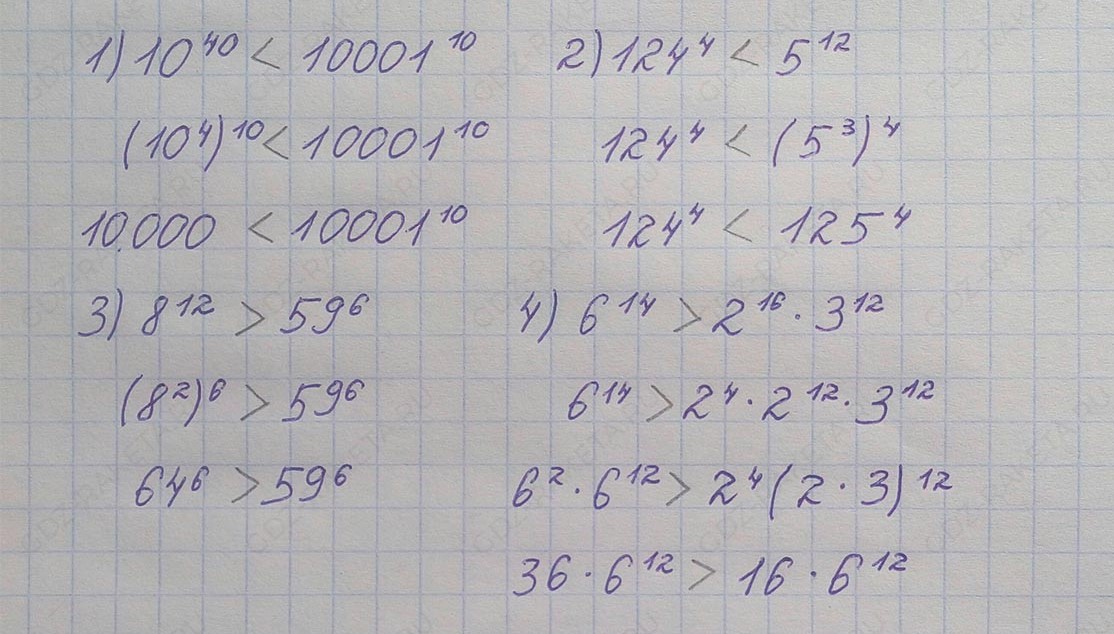 1) 10⁴⁰ < 10001¹⁰
(10⁴)¹⁰ < 10001¹⁰
10.000 < 10001¹⁰
2) 124⁴ < 5¹²
124⁴ < (5³)⁴
124⁴ < 125⁴
3) 8¹² > 59⁶
(8²)⁶ > 59⁶
64⁶ > 59⁶
4) 6¹⁴ > 2¹⁶ · 3¹²
6¹⁴ > 2⁴ · 2¹² · 3¹²
6² · 6¹² > 2⁴(2 · 3)¹²
36 · 6¹² > 16 · 6¹²